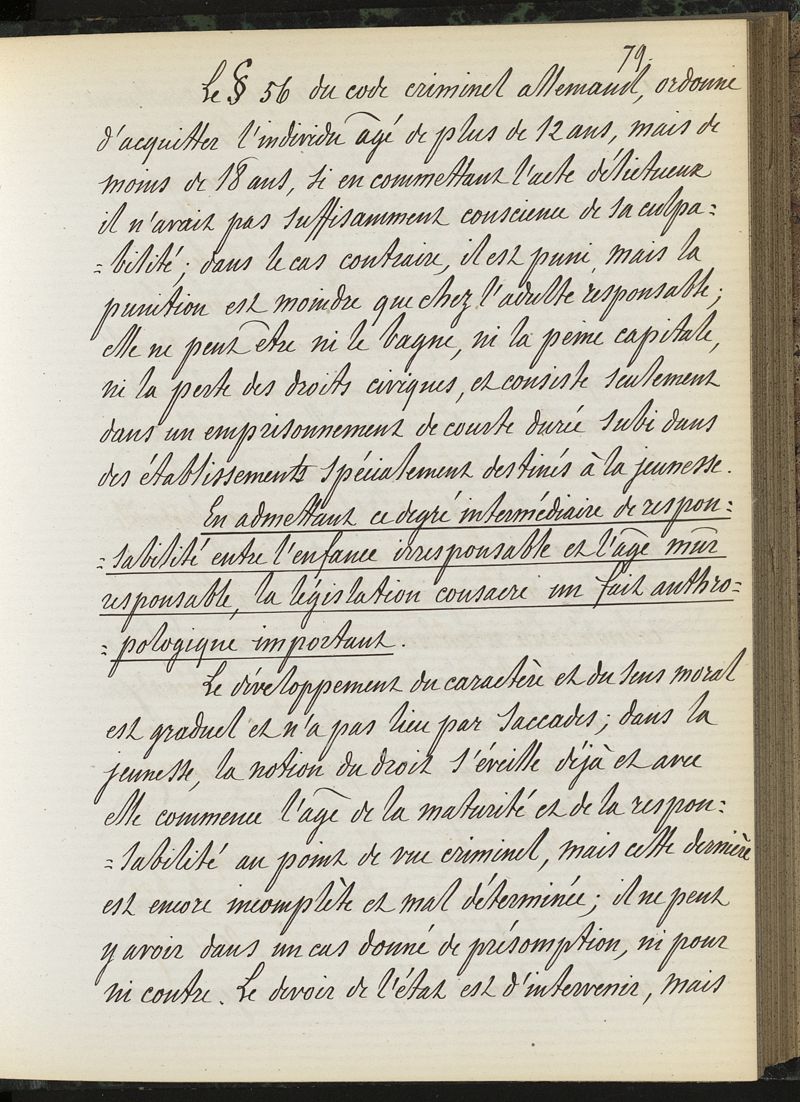 79.
Le § 56 du code criminel allemand, ordonne
d'acquitter l'individu âgé de plus de 12 ans, mais de
moins de 18 ans, si en commettant l'acte délictueux
il n'avait pas suffisamment conscience de sa culpa=
=bilité; dans le cas contraire, il est puni, mais la
punition est moindre que chez l'adulte responsable;
elle ne peut être ni le bagne, ni la peine capitale,
ni la perte des droits civiques, et consiste seulement
dans un emprisonnement de courte durée subi dans
des établissements spécialement destinés à la jeunesse.
En admettant ce degré intermédiaire de respon=
=sabilité entre l'enfance irresponsable et l'âge mûr
responsable, la législation consacre un fait anthro=
=pologique important.
Le développement du caractère et du sens moral
est graduel et n'a pas lieu par saccades; dans la
jeunesse, la notion du droit s'éveille déjà et avec
elle commence l'âge de la maturité et de la respon=
=sabilité au point de vue criminel, mais cette dernière
est encore incomplète et mal déterminée; il ne peut
y avoir dans un cas donné de présomption, ni pour
ni contre. Le devoir de l'état est d'intervenir, mais